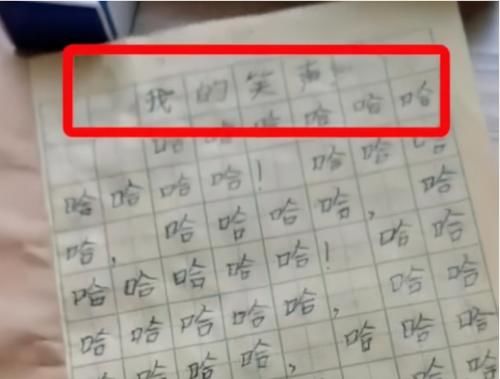 我的笑声
哈哈哈哈哈哈
哈哈哈哈！哈哈哈
哈，哈哈哈哈，哈
哈哈哈哈哈！哈哈
哈哈哈哈哈，哈哈
哈哈哈哈，哈哈哈
哈哈哈